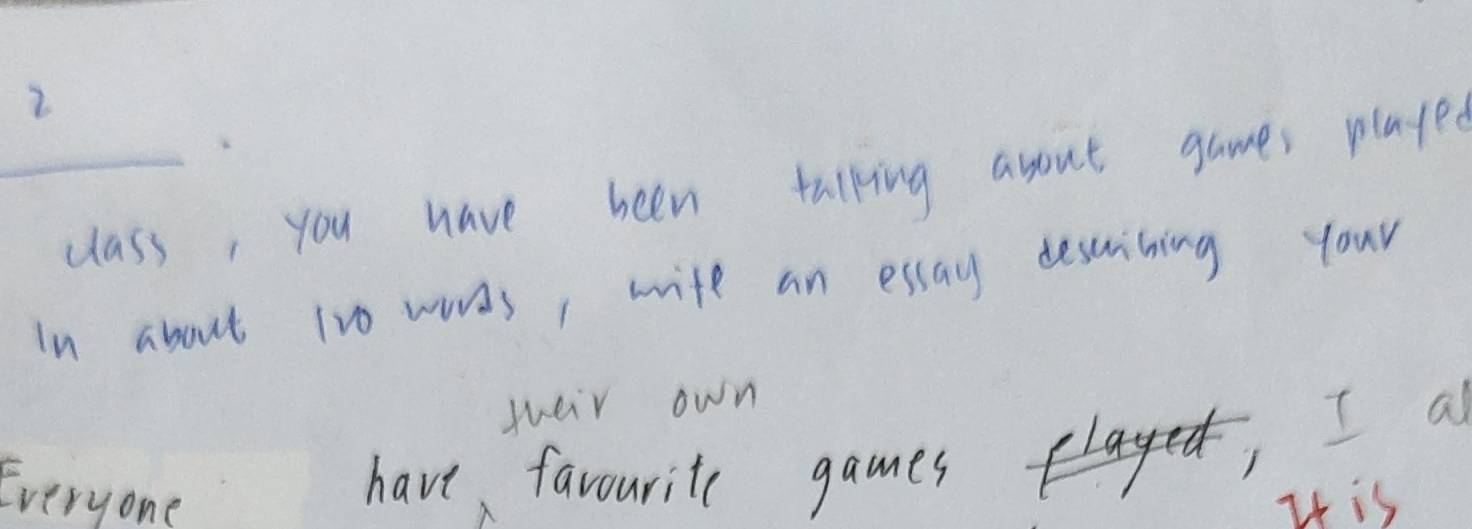 2
class, you have been talking about games played
In about 120 words, write an essay describing your
their own
Everyone have favourite games played, I al
It is